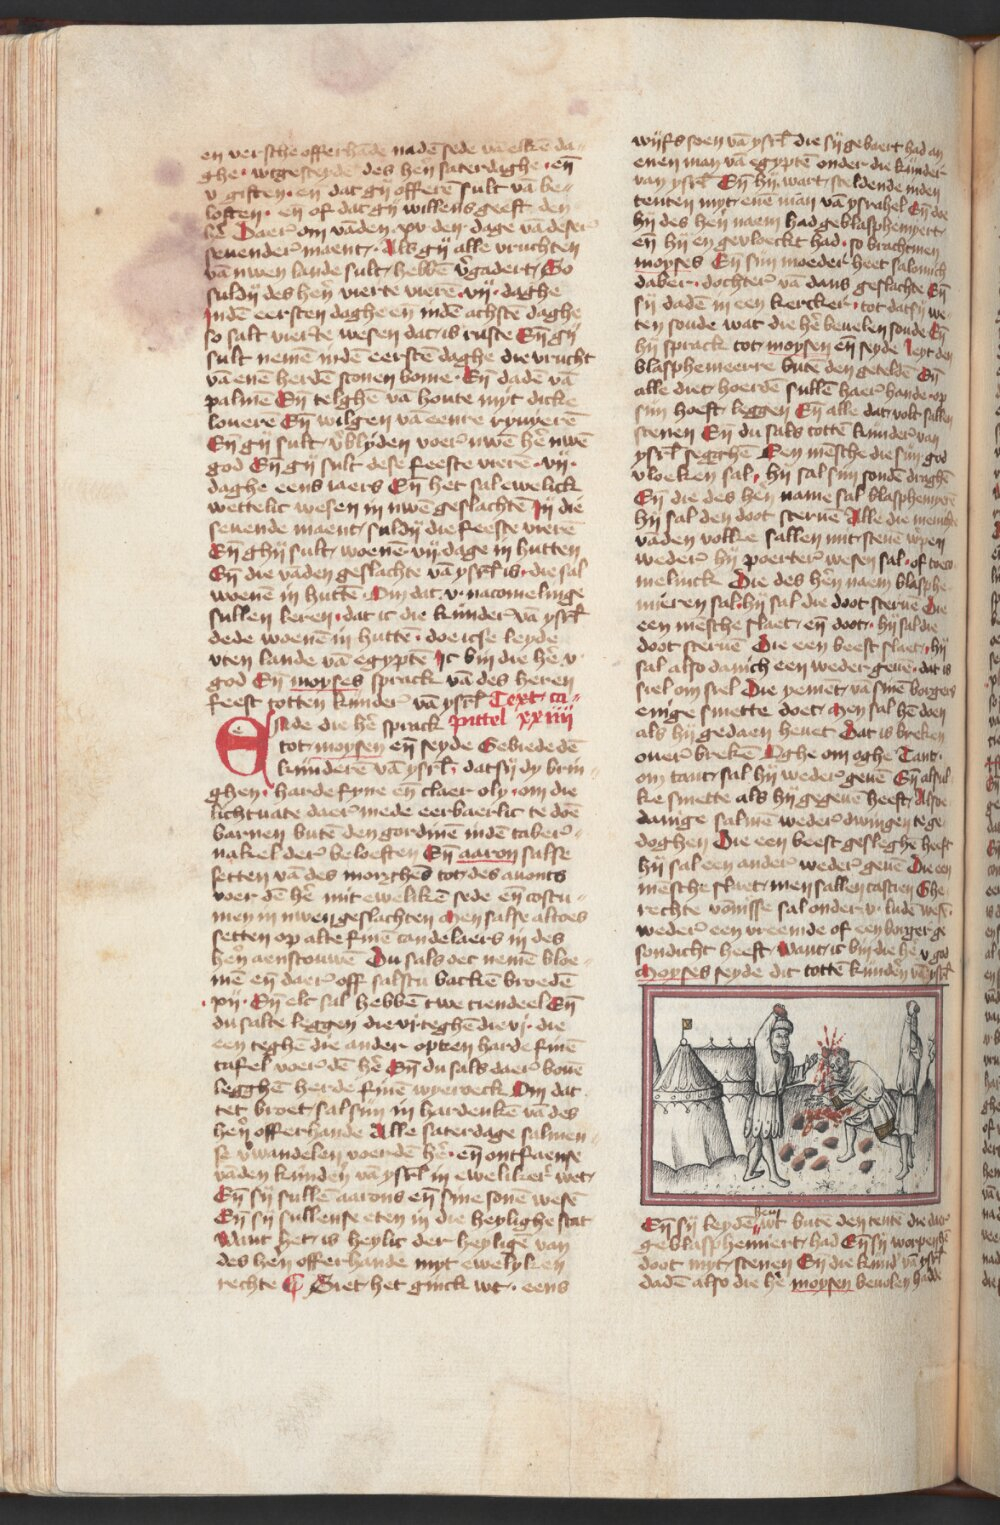 en versche offerhāde nadē sede vā elkē da-
ghe · wtgesteydē des hēn saterdaghe · eñ
v giften · en dat gij offerē sult vā be-
loften · eñ of dat gij willens geeft den
hē Daer om vāden · xv · den · dage vā deser
seuender maent · Als gij alle vruchten
vā uwen lande sult hebbē v̄gadert So
suldij des hēn vierte vierē · vij · daghe
indē eersten daghe en indē achstē daghe
so salt vierte wesen dat is ruste Eñ gij
sult nemē indē eerstē daghe die vrucht
vā enē herdē sconen bome · Eñ dadē vā
palmē Eñ telghē vā houte myt dicke
louerē Eñ wilgen vā eenre ryuierē
Eñ gij sult v̄blyden voer uwē hē uwē
god Eñ gij sult dese feeste vierē · vij ·
daghe eens iaers Eñ het sal ewelick
wettelic wesen in uwē geslachtē In die
seuende maent suldij die feeste vierē
Eñ ghij sult woenē vij dage in hutten
Eñ die vāden geslachte vā ysrl̄ is · die sal
wonē in huttē · Om dat · v · nacomelinge
sullen leren · dat ic die kinder vā ysrl̄
dede woenē in huttē · doe icse leyde
vten lande vā egyptē Ic bin die hē v
god Eñ moyses sprack vā des heren
feest totten kinder vā ysrl̄ Text ca-
pittel xxiiij
Ende die hē sprack
tot moysen eñ seyde Gebiede dē
kinderē vā ysrl̄ · dat sij dy brin-
ghen · harde fyne eñ claer oly · om die
lichtuate daer mede eerbaerlic te doē
barnen butē den gordinē indē taber-
nakel der beloeften Eñ aaron salse
setten vā des morghēs tot des auonts
voer dē hē mit ewelikē sede eñ costu-
men in uwen geslachten Men salse altoes
setten op alte finē candelaers in des
hēn aenscouwē Du sals oec nemē bloe-
mē eñ daer off salstu backē broedē
· xij · Eñ elc sal hebbē twe tiendeel Eñ
du salte leggen die vi · teghē die vi · die
een teghē die ander opten harde finē
tafel voer dē hē Eñ du sals daer bouē
legghē herde finē wyeroeck Om dat
tet broet sal sijn in hardenkē vā des
hēn offerhande Alle saterdage salmen-
se v̄wandelen voerdē hē · eñ ontfaense
vāden kinden vā ysrl̄ in eweliker wet
Eñ sij sullē aarons eñ sine sonē wesē
Eñ sij sullense eten in die heylighe stat
Want het is heylic der heyligē van
des hēn offerhande myt ewelyken
rechte ¶ Siet het ginck wt · eens
wijfs soen vā ysrl̄ die sij gebaert had an
enen man vā egyptē onder die kinder
van ysrl̄ Eñ hij wart sceldende inden
tenten myt enē man vā ysrahel Eñ doe
hij des hēn naem had geblasphemyert
eñ hij en gevloeckt had · so brachtmen
moyses Eñ sijn moeder heet salomich
daber · dochter vā dans geslachte Eñ
sij dadē in een kercker · tot dat sij we-
ten soude wat die hē beuelen soude Eñ
hij sprack tot moysen eñ seyde leyt den
blasphemeerre butē den geteldē Eñ
alle diet hoerdē sullē haer hande op
sijn hoeft leggen Eñ alle dat volk sallen
stenen Eñ du sals tottē kinder van
ysrl̄ segghē Een mēsche die sijn god
vloeken sal · hij sal sijn sondē draghē
Eñ die des hēn name sal blasphemyerē
hij sal den doot steruē Alle die menichte
vāden volke sallen mit stenē werpen
weder hij poerter wesen sal · of toeco-
melinck Die des hēn naem blasphe-
mieren sal · hij sal die doot steruē Die
een mēsche slaet eñ doot · hij sal die
doot steruē Die een beest slaet · hij
sal also danich een weder geuē · dat is
siel om siel Die yemēt vā sinē borgers
enige smette doet Men sal hē doen
als hij gedaen heuet Dat is breken
ouer brekē Oghe om oghe Tant ·
om tant sal hij weder geuē Eñ alsul-
ke smette als hij gegeuē heeft Alsoe-
danige salmē weder dwingen te ge-
doghen Die een beest gesleghē heeft
hij sal een ander weder geuē Die een
mēsche slaet men sallen castien Ghe-
rechte vōnisse sal onder · v · ludē wesē ·
weder een vreemde of een borger ge-
sondicht heeft Want ic bin die hē v god
Moyses seyde dit tottē kinderē vā ysrl̄
Eñ sij leydē hem wt butē den tentē die daer
geblasphemiert had Eñ sij worpen hē
doot myt stenen Eñ die kind vā ysrl̄
dadē also die hē moysen beuolen hadde